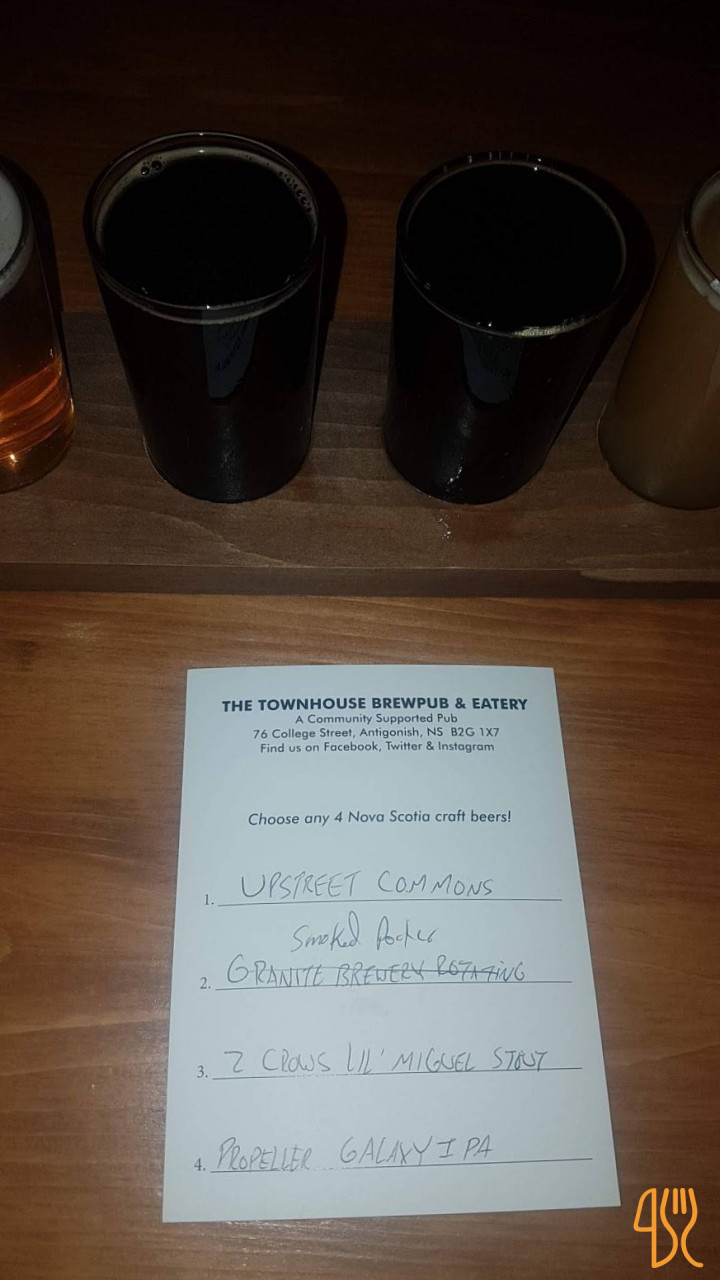 THE TOWNHOUSE BREWPUB & EATERY
A Community Supported Pub
76 College Street, Antigonish, NS B2G 1X7
Find us on Facebook, Twitter & Instagram
Choose any 4 Nova Scotia craft beers!
1. UPSTREET COMMONS
Smoked Porter
2. GRANITE BREWERY ROTATING
3. 2 CROWS LIL' MIGUEL STOUT
4. PROPELLER GALAXY IPA